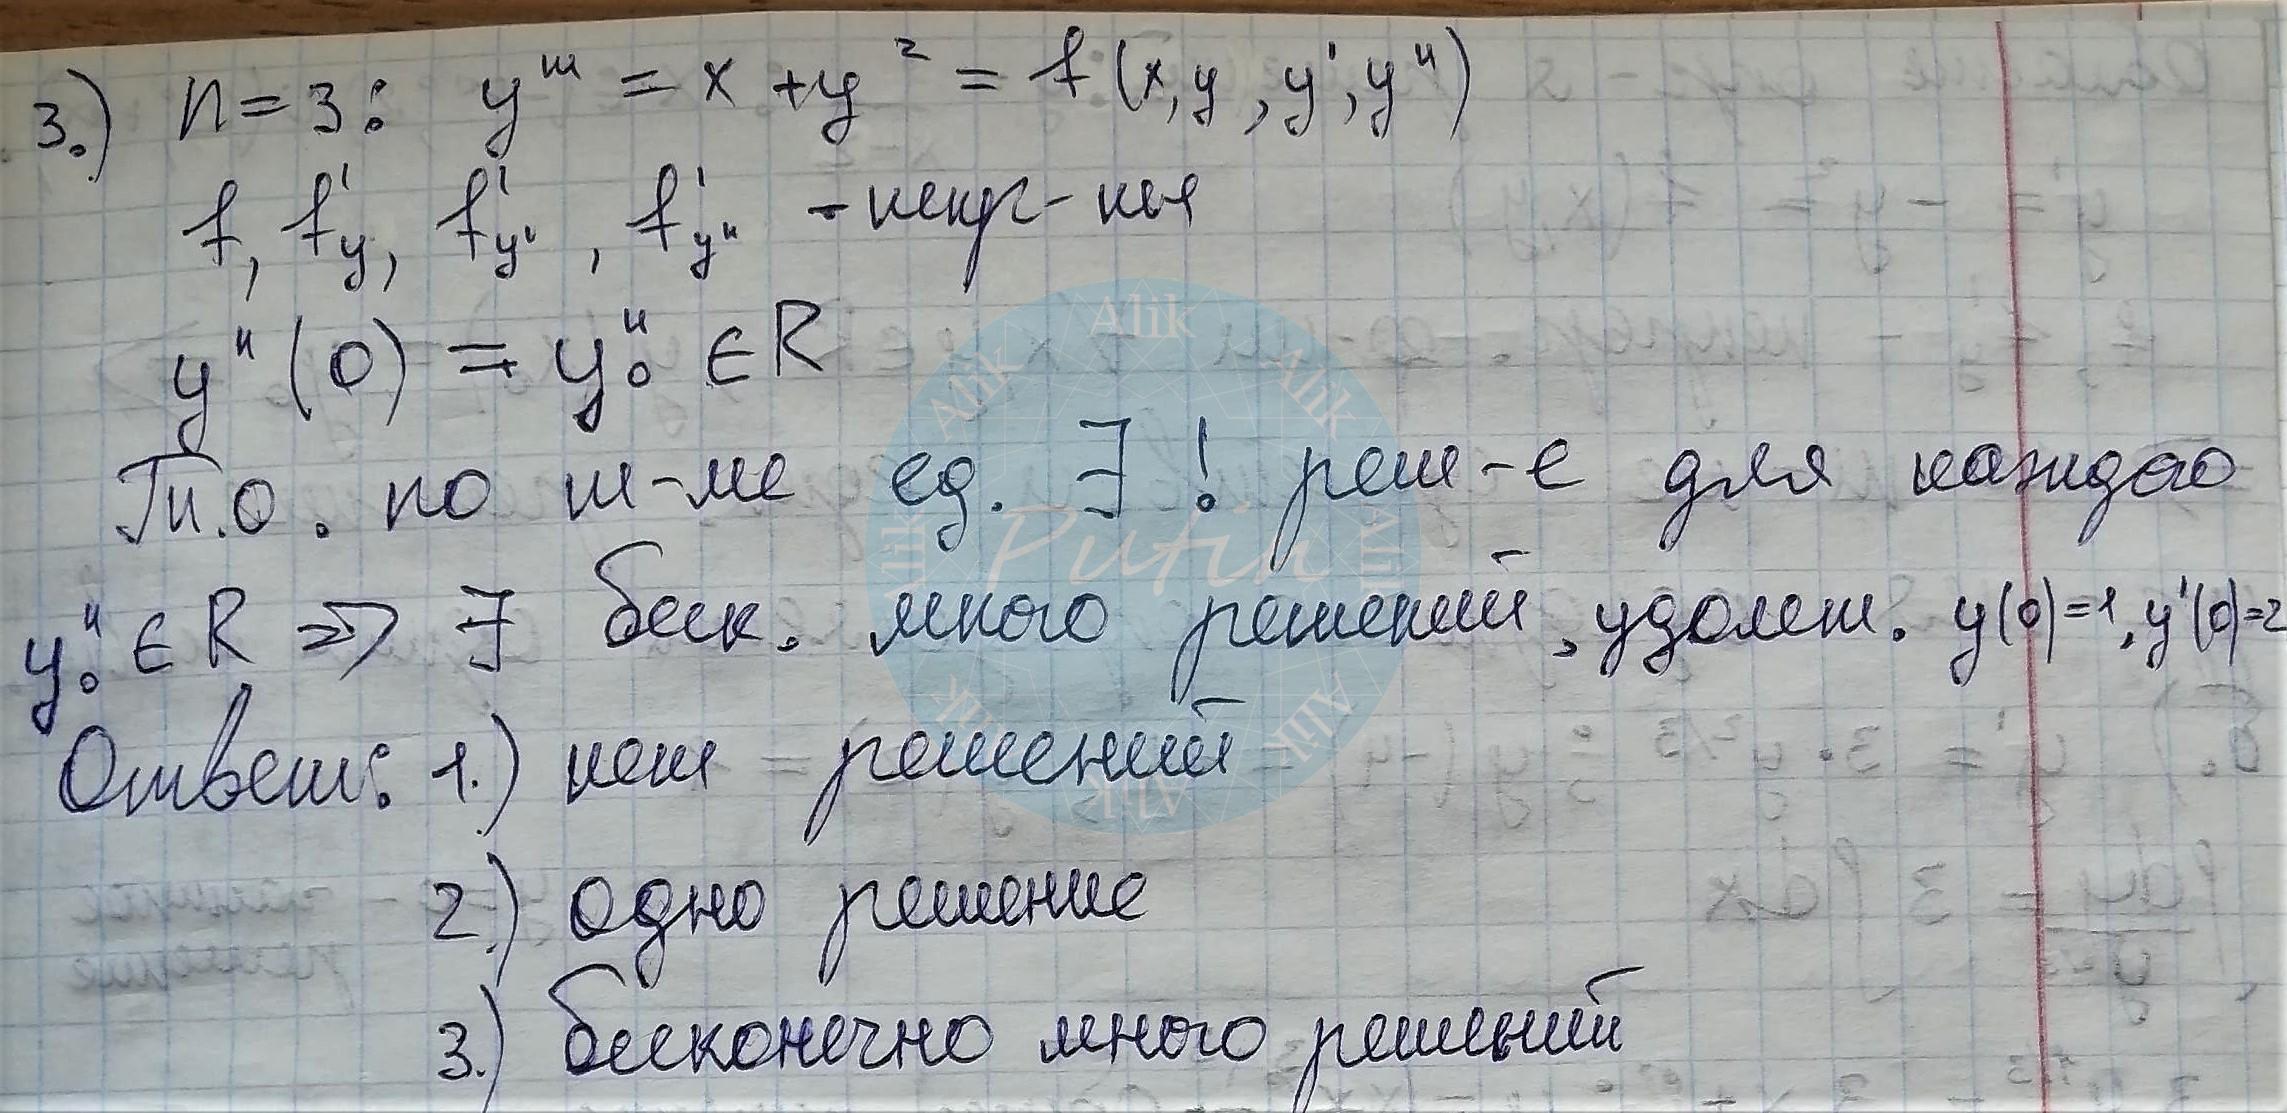 3.) n=3: y''' = x + y² = f(x, y, y', y'')
f, f'y, f'y', f'y'' - непр-ны
y''(0) = y''₀ ∈ R
Т.о. по т-ме ед. ∃! реш-е для каждого
y''₀ ∈ R => ∃ беск. много решений, удовлет. y(0)=1, y'(0)=2
Ответ: 1.) нет решений
2.) одно решение
3.) бесконечно много решений
Alik
Alik
Alik
Alik
Alik
Alik
Alik
Alik
Putin